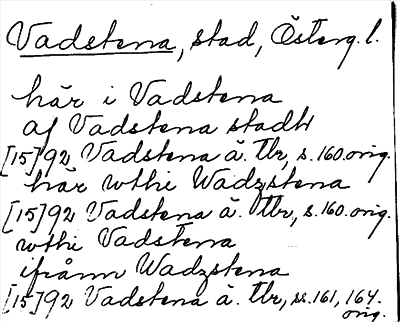 Vadstena, stad, Österg. l.
här i Vadstena
af Vadstena stadh
[15]92 Vadstena ä. Tbr, s. 160. orig.
här wthi Wadzstena
[15]92 Vadstena ä. Tbr, s. 160. orig.
wthi Vadstena
ifrånn Wadzstena
[15]92 Vadstena ä. Tbr, ss. 161, 164.
orig.